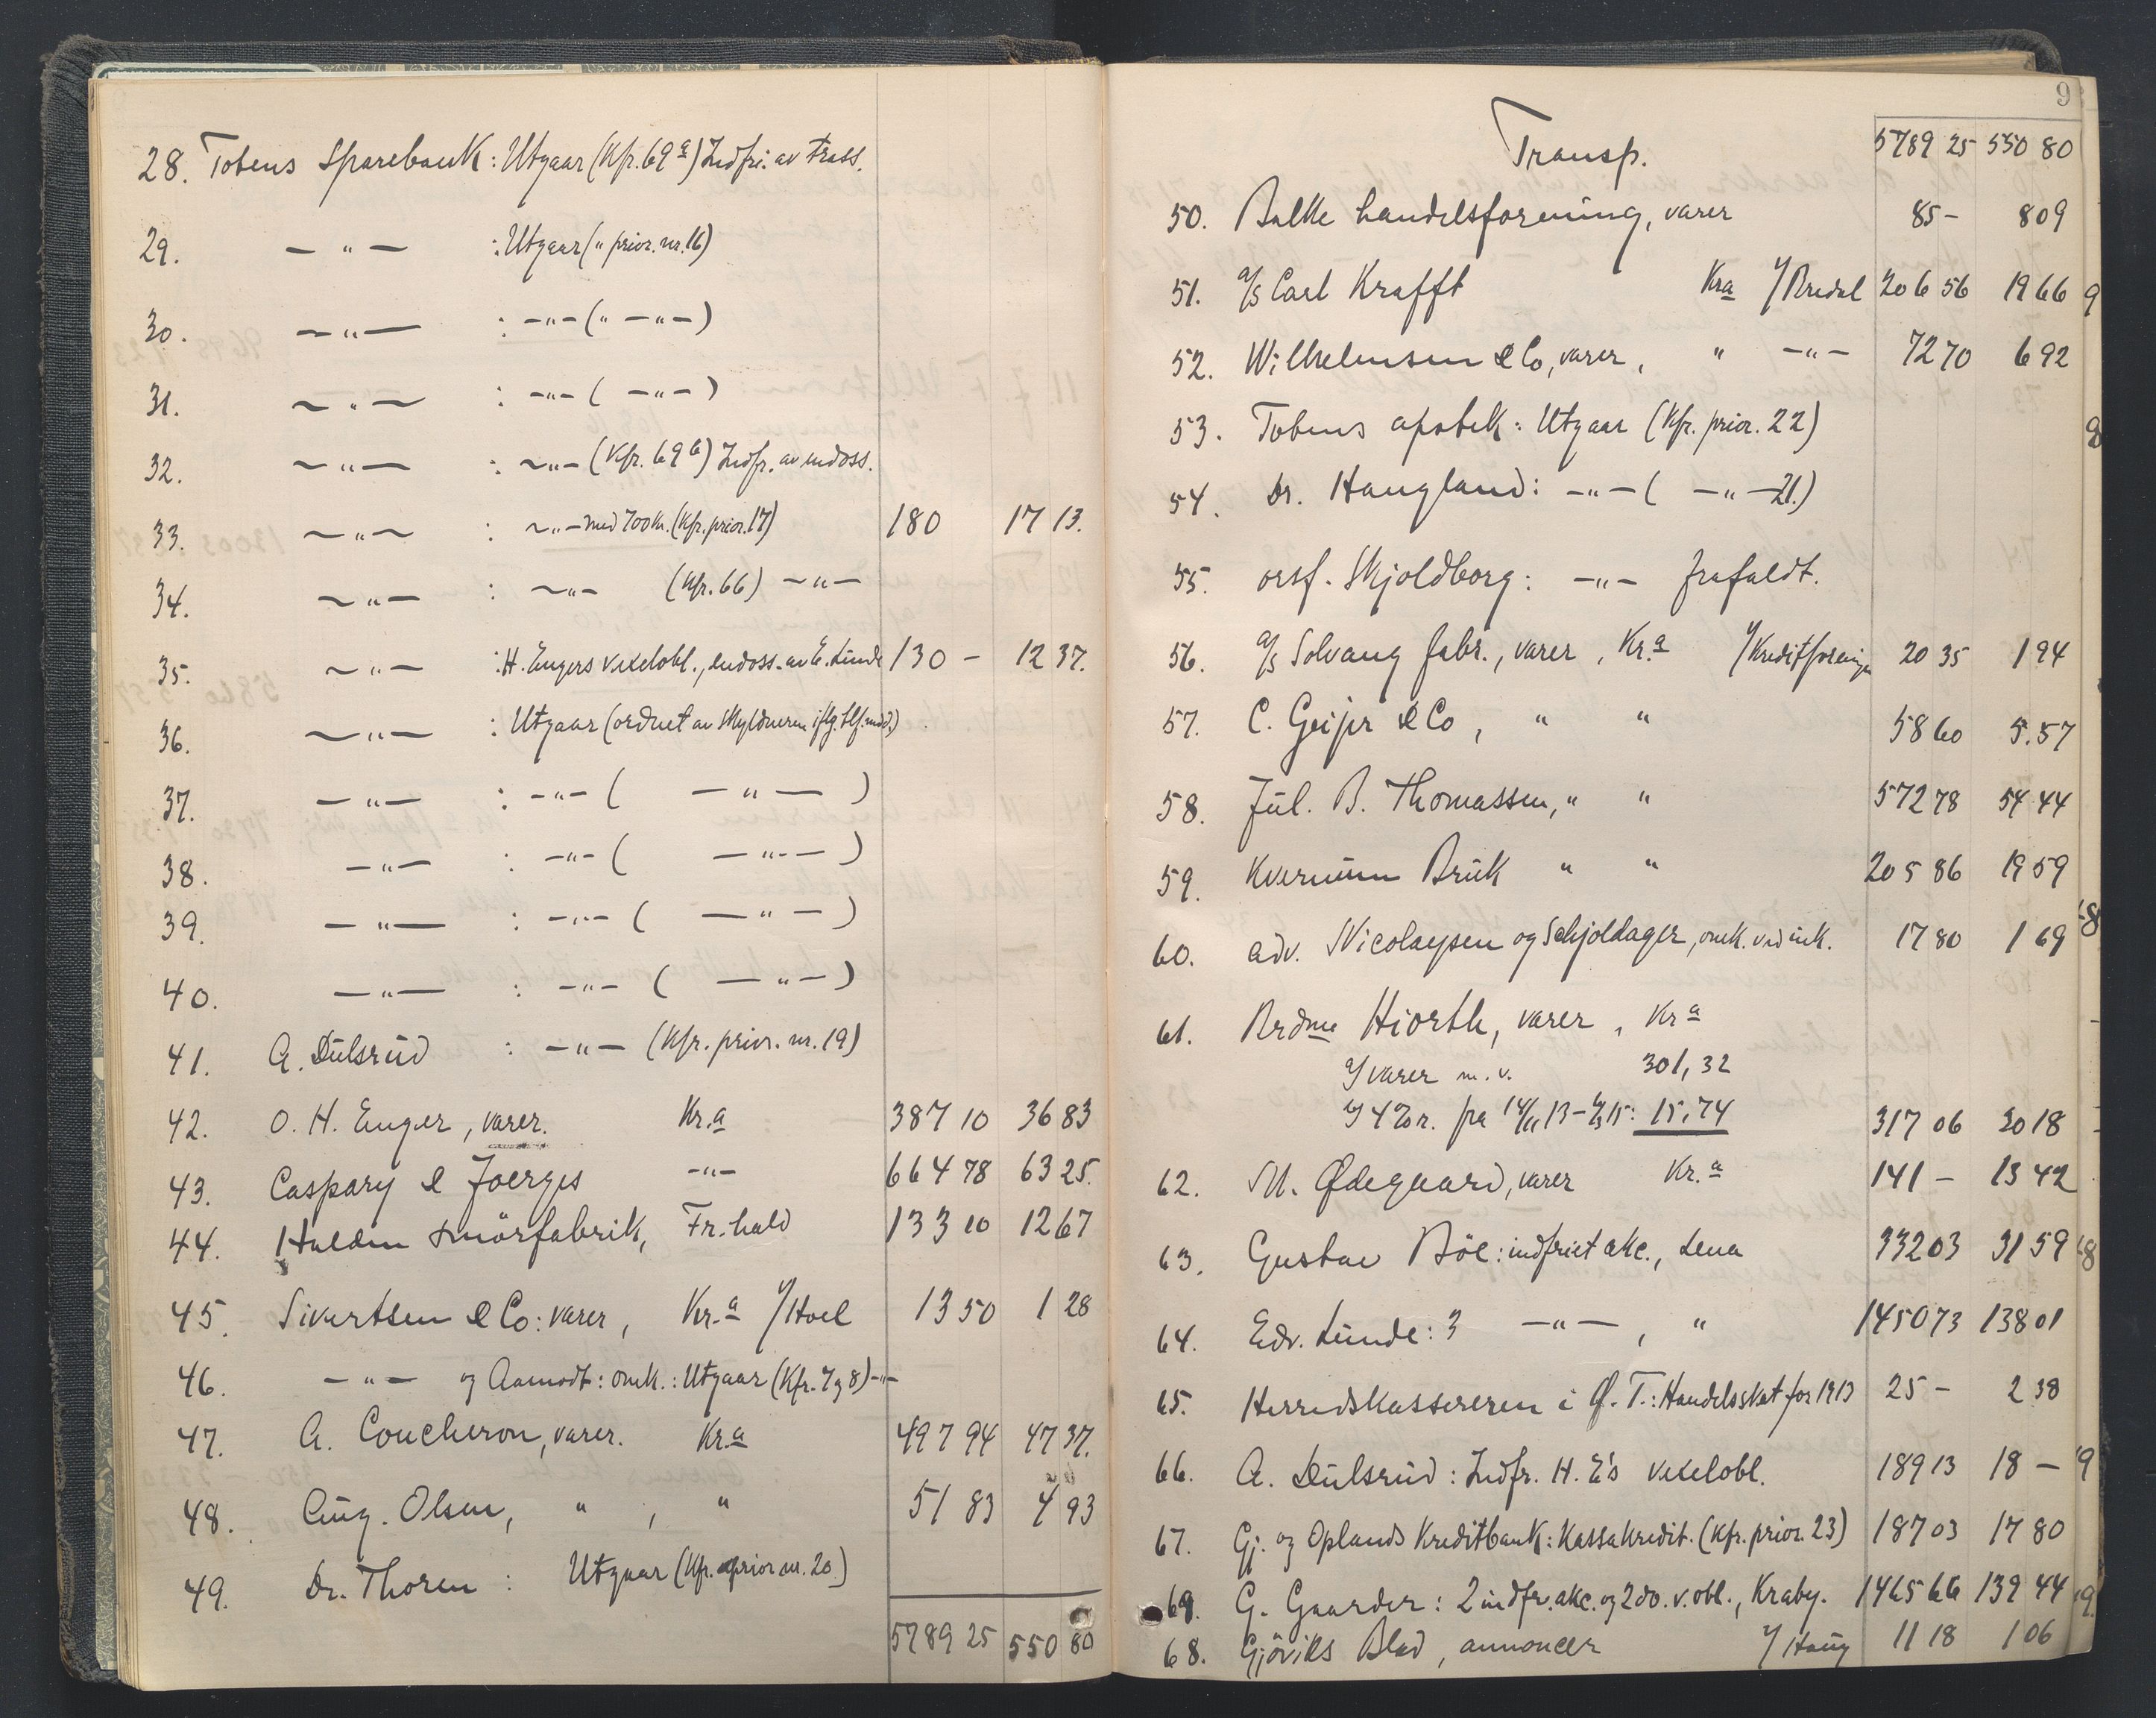 28. Totens Sparebank: Utgaar (Kfr. 69 a) Indfri. av trass.
29. — " — : Utgaar (" prior. nr. 16)
30. — " — : — " — (" — " —)
31. — " — : — " — ( — " — )
32. — " — : — " — (Kfr. 69 b) Indfr. av endoss.
33. — " — : — " — med 700 kr. (Kfr. prior. 17) 180 17 13.
34. — " — : — " — (Kfr. 66) — " —
35. — " — : H. Engers vexelobl., endoss. av E. Lunde 130 – 12 37.
36. — " — : Utgaar (ordnet av skyldneren iflg. tlf. med.)
37. — " — : — " — ( — " — )
38. — " — : — " — ( — " — )
39. — " — : — " — ( — " — )
40. — " — : — " — ( — " — )
41. A. Dulsrud : — " — (Kfr. prior. nr. 19)
42. O. H. Enger, varer. Kr.a 387 10 36 83
43. Caspary & Joerges — " — 664 78 63 25.
44. Halden smörfabrik, Fr.hald 133 10 12 67
45. Sivertsen & Co: varer, Kr.a v/ Hoel 13 50 1 28
46. — " — og Aamodt: omk.: Utgaar (Kfr. 7 og 8) — " —
47. A. Coucheron, varer. Kr.a 497 94 47 37.
48. Aug. Olsen, " , " 51 83 4 93
49. Dr. Thoren : Utgaar (Kfr. prior nr. 20)
5789 25 550 80
9
Transp. 5789 25 550 80
50. Balke handelsforening, varer 85 – 8 09
51. A/S Carl Krafft Kra v/ Bredal 206 56 19 66
52. Wilhelmsen & Co, varer, " — " — 72 70 6 92
53. Totens apotek: Utgaar (Kfr. prior. 22)
54. Dr. Haugland: — " — ( — " — 21.)
55. orsf. Skjoldborg: — " — frafaldt.
56. A/S Solvang fabr., varer, Kr.a v/ Kreditforeningen 20 35 1 94
57. C. Geijer & Co, " " 58 60 5.57
58. Jul. B. Thomassen, " " 572 78 54 44
59. Kvernum Bruk " " 205 86 19 59
60. adv. Nicolaysen og Schjoldager, omk. ved ink. 17 80 1 69
61. Brdme Hiorth, varer, Kr a
a/ varer m. v. 301,32
b/ 4% r. fra 14/11 13 – 4/3 15: 15,74 317 06 30 18
62. M. Ødegaard, varer Kr.a 141 – 13 42
63. Gustav Böe: indfriet akc., Lena 332 03 31 59
64. Edv. Lunde: 3 — " —, " 1450 73 138 01
65. Herredskassereren i Ø. T.: Handelsskat for 1913 25 – 2 38
66. A. Dulsrud: Indfr. H. E's vexelobl. 189 13 18 –
67. Gj. og Oplands Kreditbank: Kassakredit. (Kfr. prior. 23) 187 03 17 80
69. G. Gaarder: 2 indfr. akc. og 2 do. v. obl., Kraby. 1465 66 139 44
68. Gjöviks Blad, annoncer v/ Haug 11 18 1 06